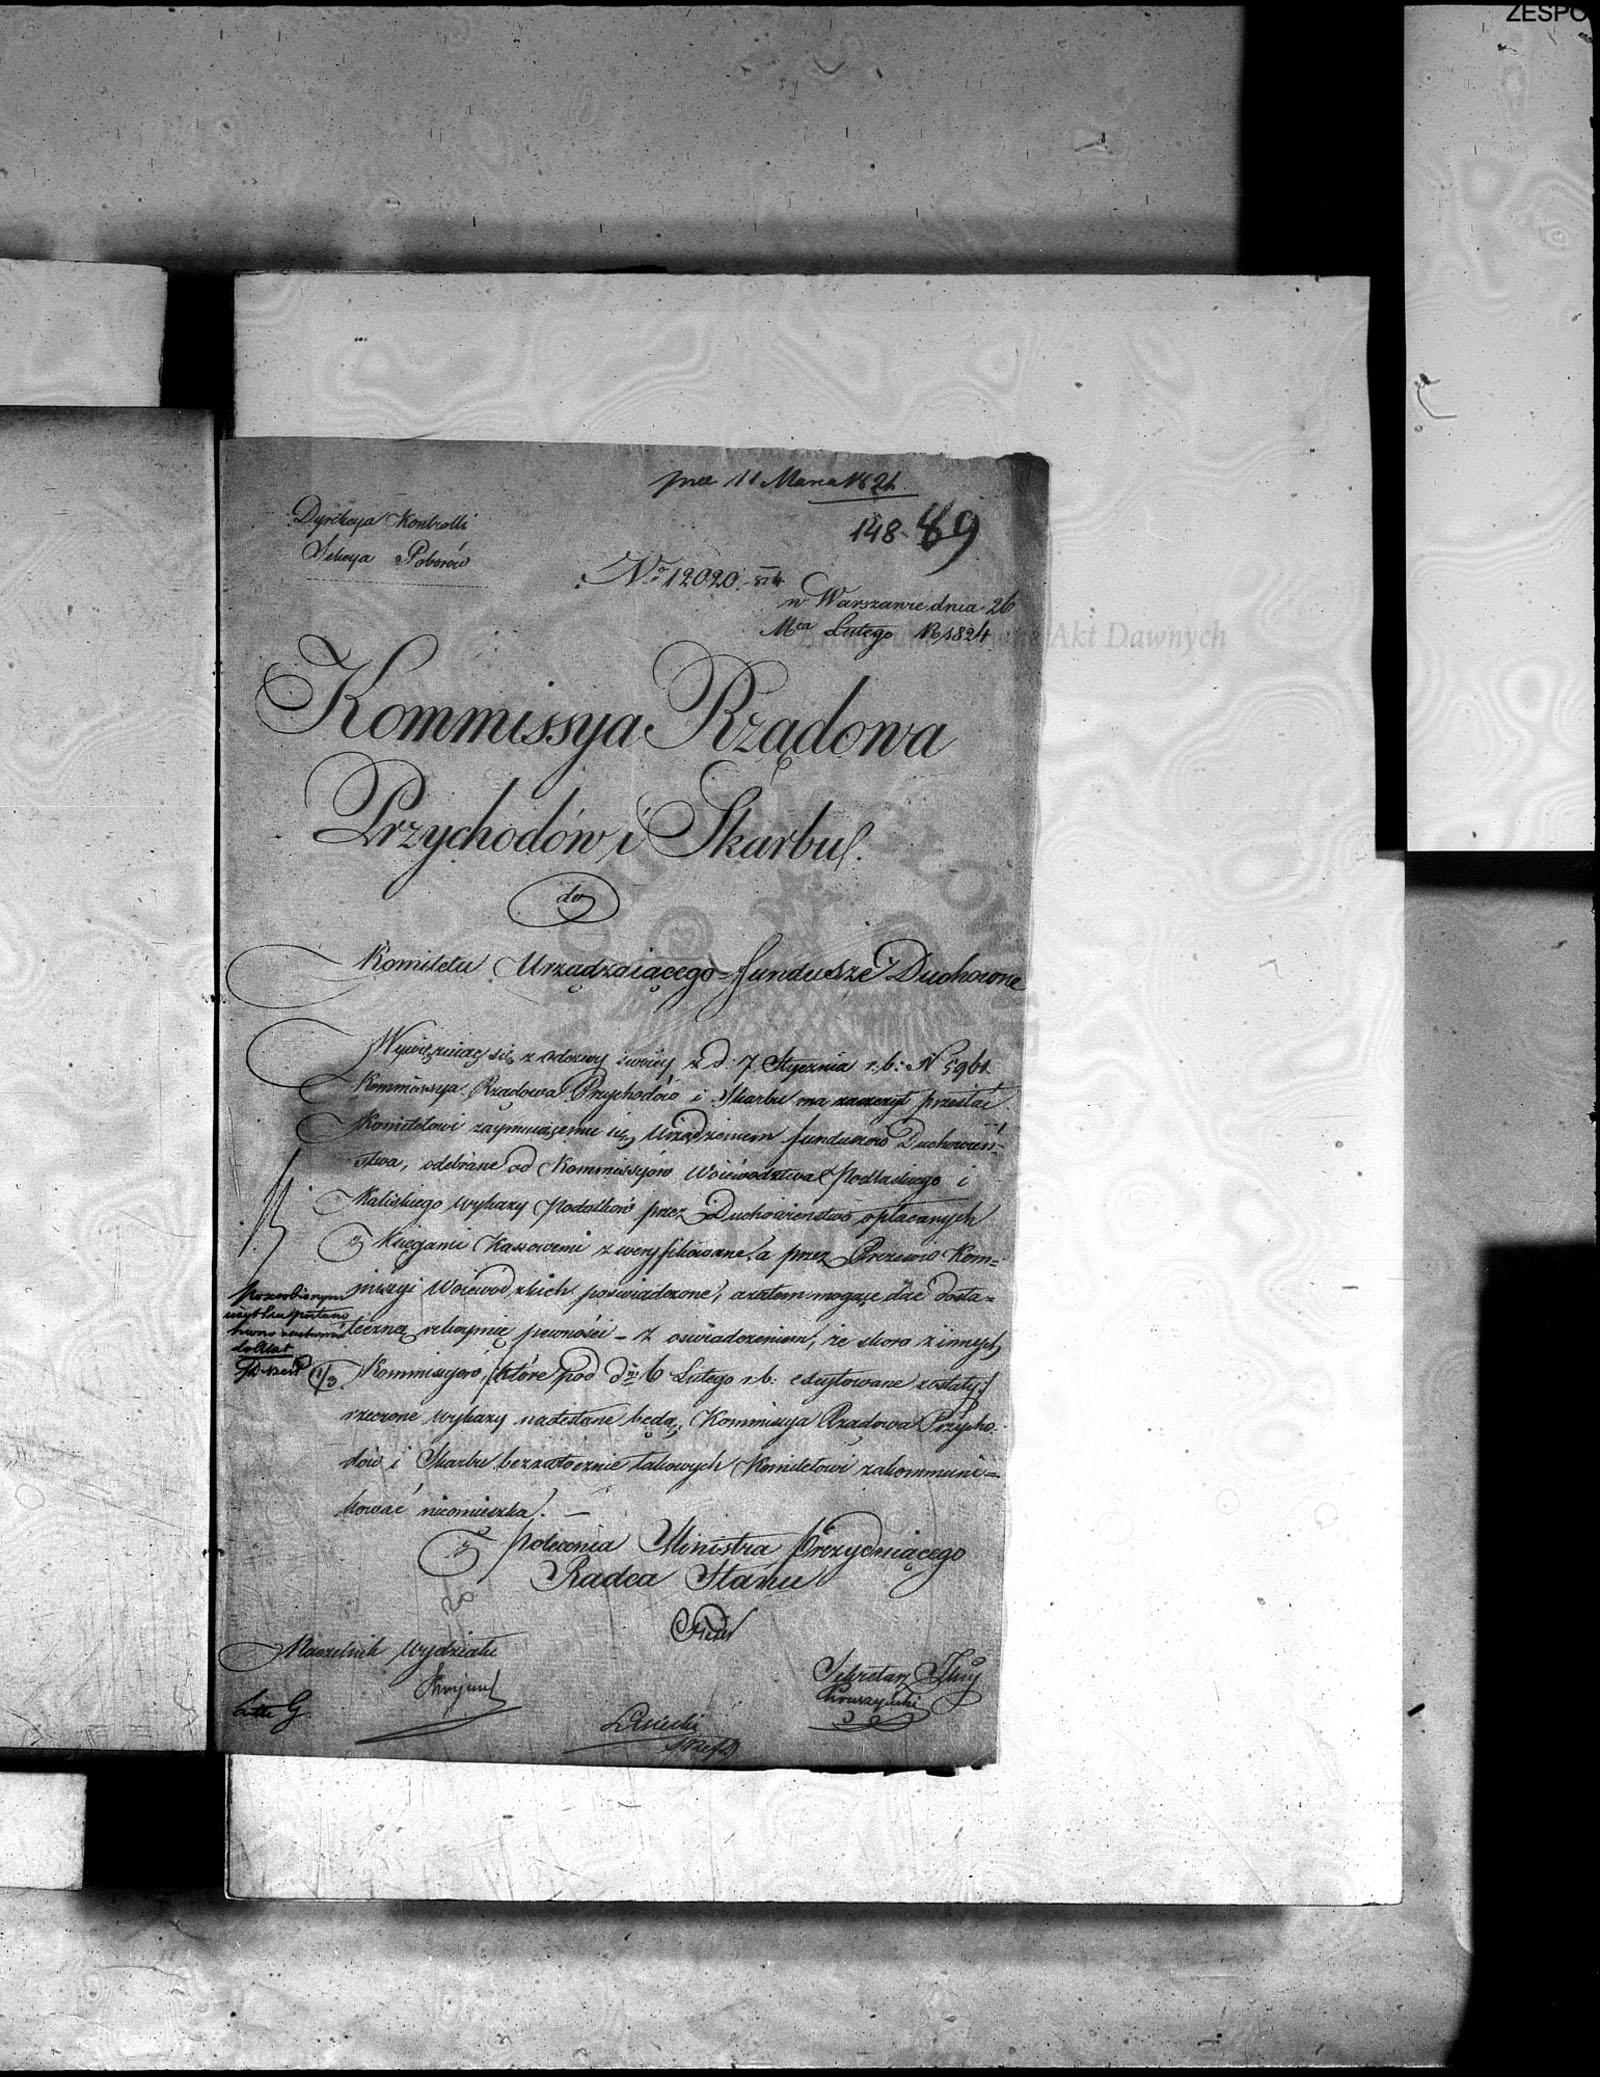 ZESPO
prez 11 Marca 1824
148-89
Dyrekcya Kontrolli
Sekcya Poborów
No 12020.
w Warszawie dnia 26
Mca Lutego R. 1824
Akt Dawnych
Kommissya Rządowa
Przychodów i Skarbu.
do
Komitetu Urządzaiącego fundusze Duchowne
Wywięzuiąc się z odezwy swoiey z d. 7 Stycznia r. b: N
Kommissya Rządowa Przychodów i Skarbu ma zaszczyt przesłać
Komitetowi zaymuiącemu się Urządzeniem funduszów Duchowień-
stwa, odebrane od Kommissyów Woiewodztwa Podlaskiego i
Kaliskiego wykazy Podatków przez Duchowieństwo opłacanych
z Xięgami Kassowemi zweryfikowane, a przez Prezesów Kom=
missyi Woiewódzkich poświadczone, a zatem mogące dać dosta=
teczną rękoymię pewności - z oświadczeniem, że skoro z innych
Kommissyów, które pod dniem 6 Lutego r. b: excytowane zostały
rzeczone wykazy nadesłane będą, Kommissya Rządowa Przycho-
dów i Skarbu bezzwłocznie takowych Komitetowi zakommuni=
kować nieomieszka. -
Z polecenia Ministra Prezyduiącego
Radca Stanu
Naczelnik Wydziału
Sekretarz Jlny